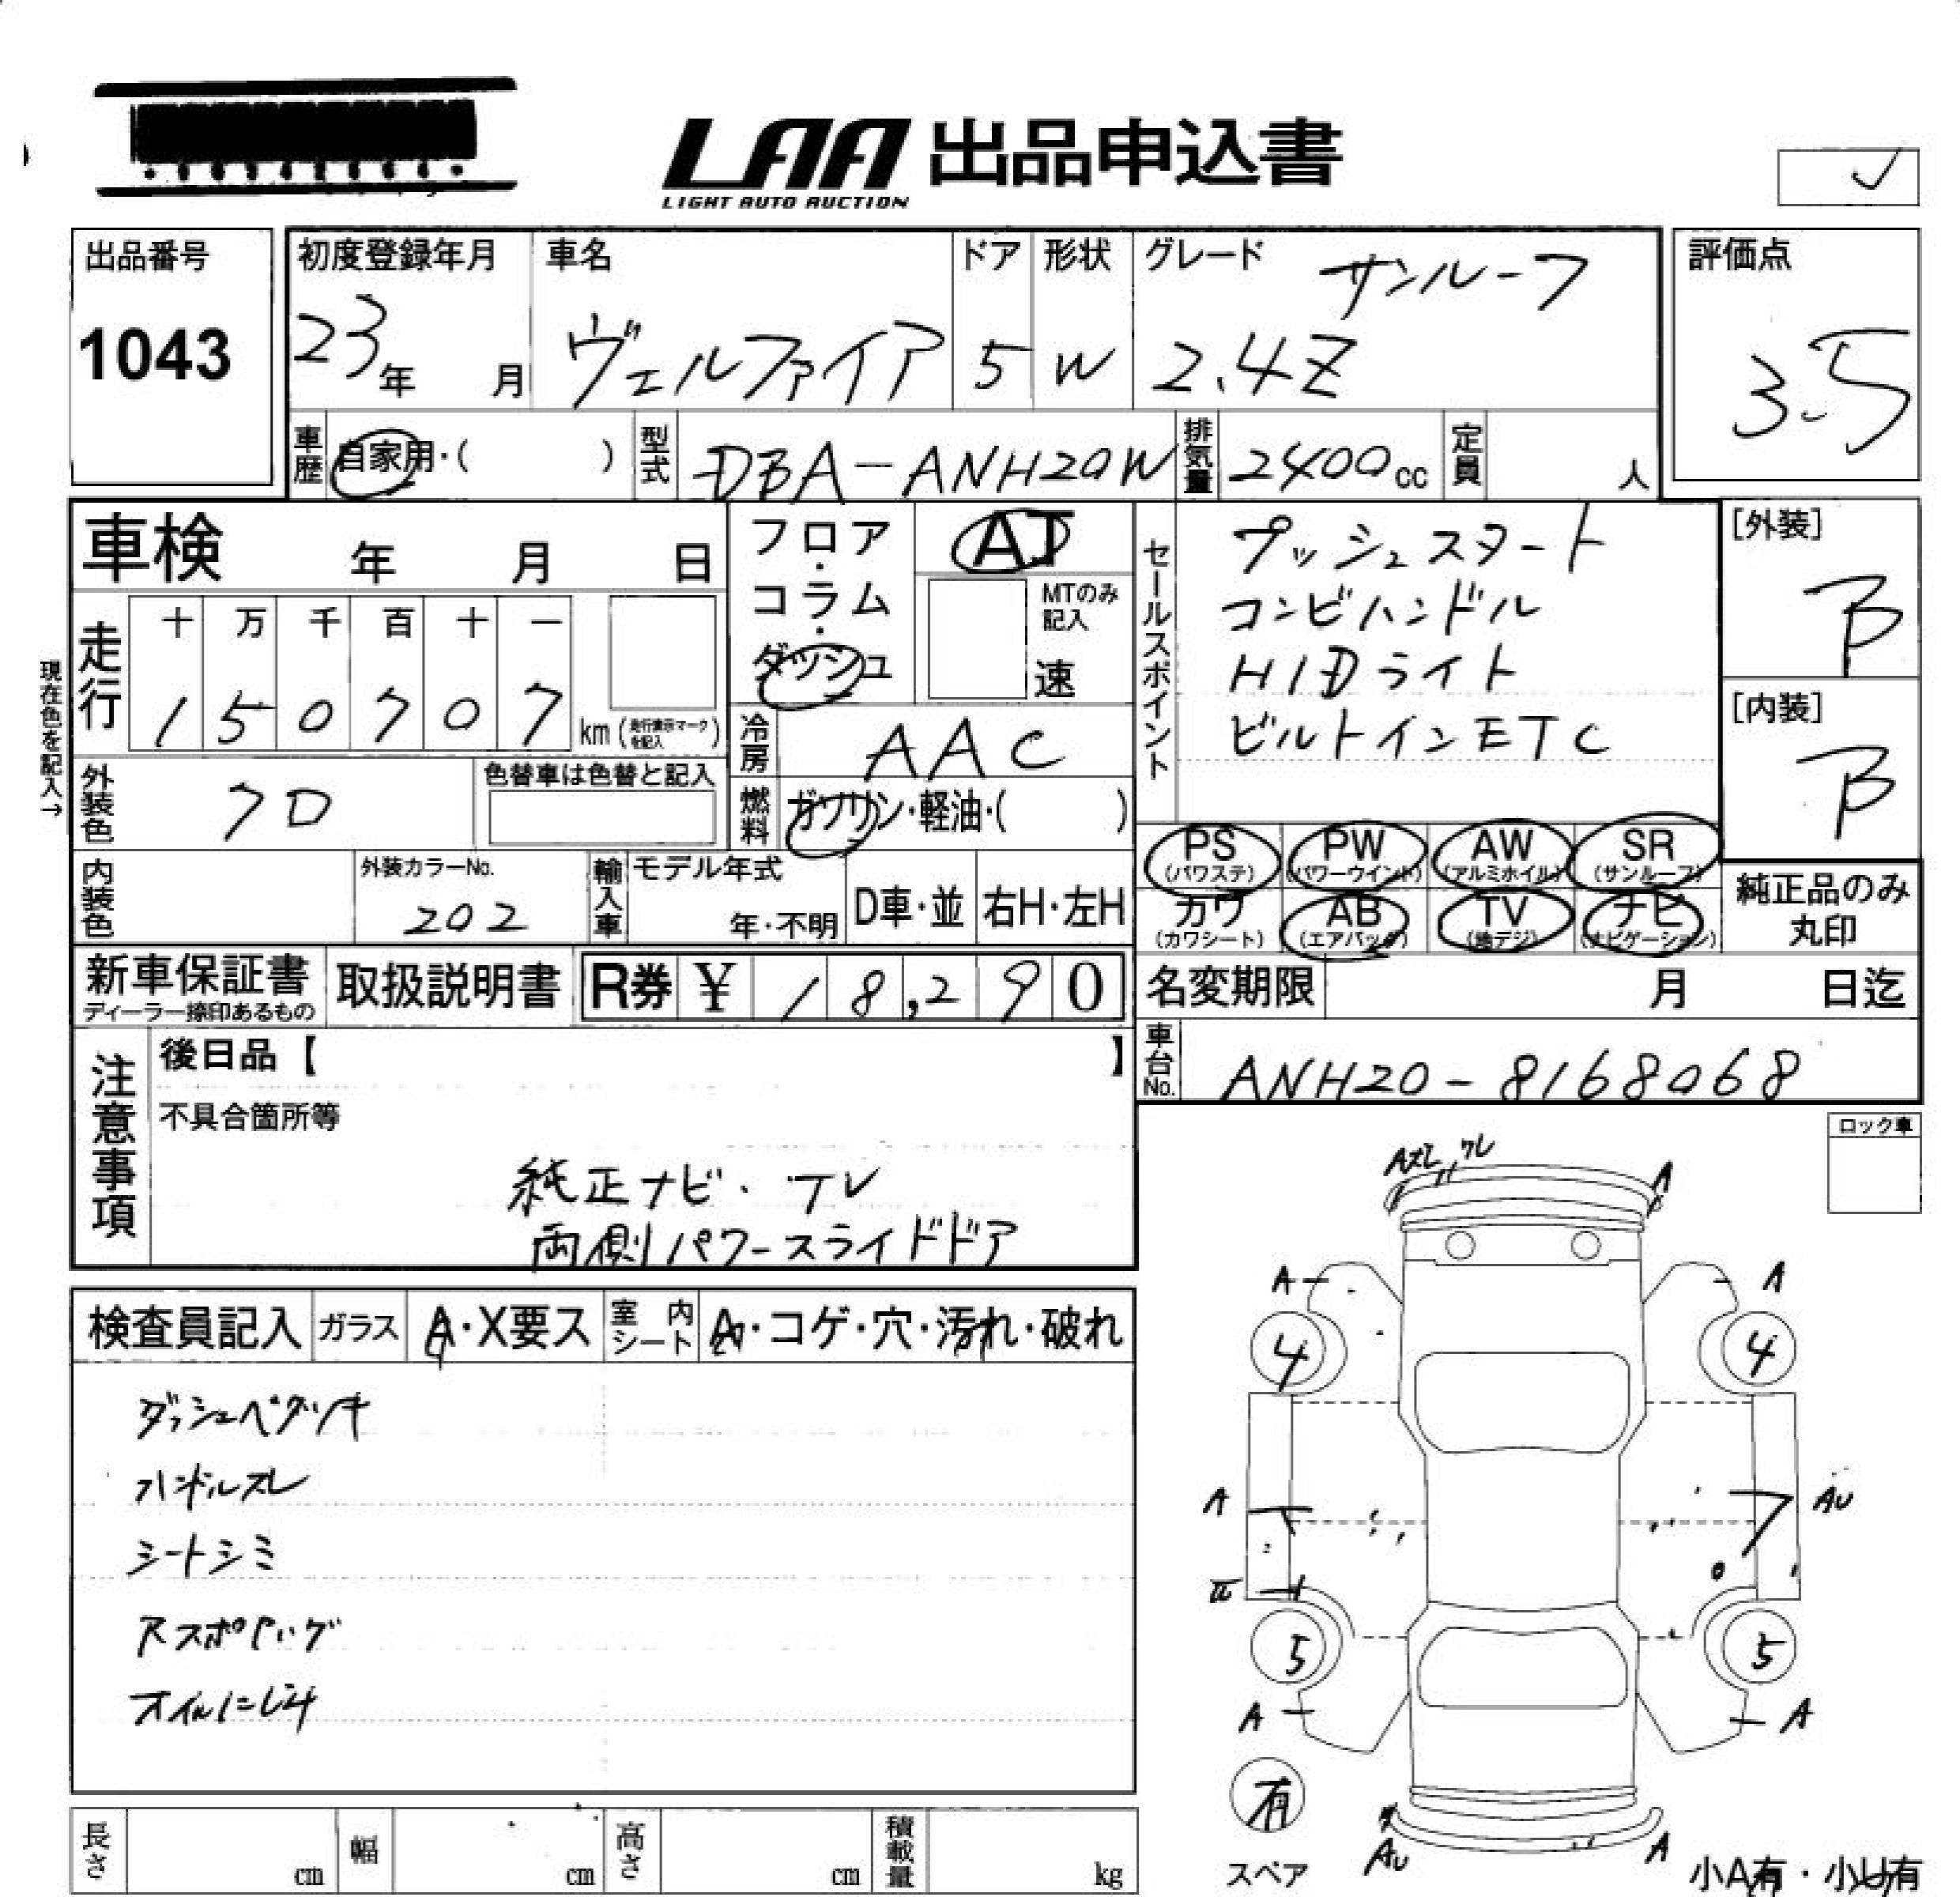 LAA 出品申込書
LIGHT AUTO AUCTION
出品番号
1043
初度登録年月
23年 月
車名
ヴェルファイア
ドア
5
形状
W
グレード サンルーフ
2.4Z
評価点
3.5
車歴 自家用・( )
型式 DBA-ANH20W
排気量 2400cc
定員 人
車検 年 月 日
フロア・コラム・ダッシュ
AT
MTのみ記入
速
走行
十 万 千 百 十 一
1 5 0 7 0 7 km (走行表示マークを記入)
現在色を記入→
冷房 AAC
外装色 クロ
色替車は色替と記入
燃料 ガソリン・軽油・( )
内装色
外装カラーNo.
202
輸入車
モデル年式
年・不明
D車・並
右H・左H
セールスポイント
プッシュスタート
コンビハンドル
HIDライト
ビルトインETC
[外装]
B
[内装]
B
PS (パワステ) PW (パワーウインド) AW (アルミホイル) SR (サンルーフ)
カワ (カワシート) AB (エアバッグ) TV (地デジ) ナビ (ナビゲーション)
純正品のみ丸印
新車保証書
ディーラー捺印あるもの
取扱説明書
R券 ¥ 18,290
名変期限 月 日迄
車台No. ANH20-8168068
注意事項
後日品【 】
不具合箇所等
純正ナビ・TV
両側パワースライドドア
ロック車
検査員記入 ガラス A・X要ス 室内シート A・コゲ・穴・汚れ・破れ
ダッシュベタツキ
ハンドルスレ
シートシミ
オイルにじみ
A
A A
4 4
A AU
5 5
A A
有
スペア
AU A
小A有・小U有
長さ cm 幅 cm 高さ cm 積載量 kg